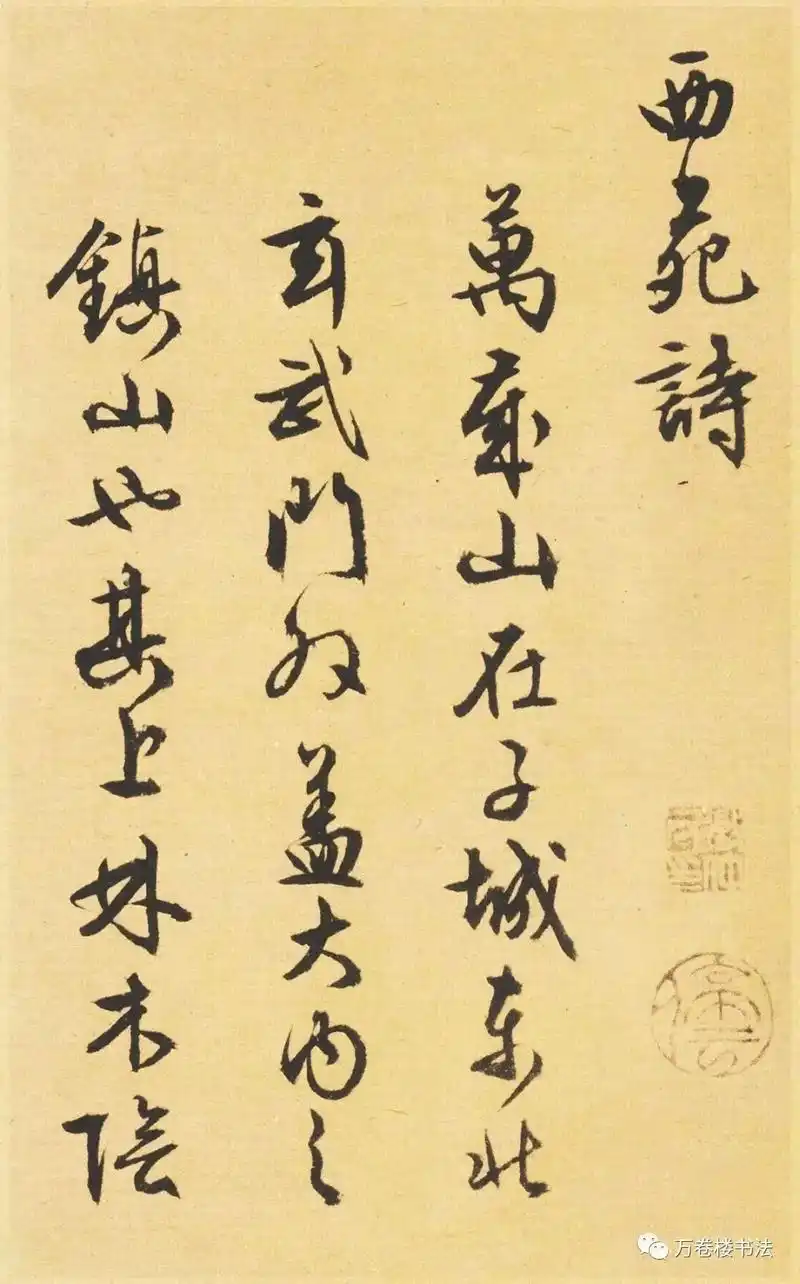 西苑詩
萬歲山在子城東北
玄武門外蓋大內之
鎮山也其上林木陰
万卷楼书法